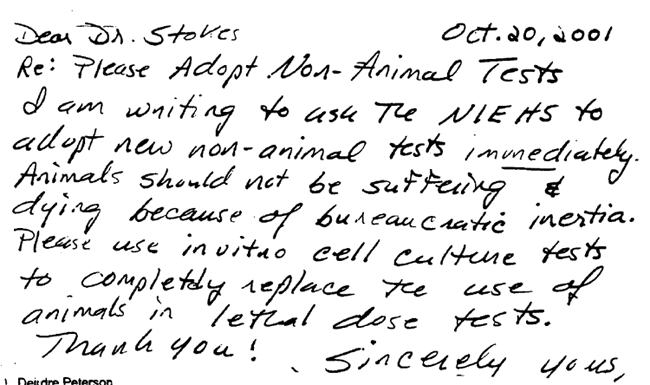 Dear Dr. Stokes Oct. 20, 2001
Re: Please Adopt Non-Animal Tests
I am writing to ask The NIEHS to
adopt new non-animal tests immediately.
Animals should not be suffering &
dying because of bureaucratic inertia.
Please use invitro cell culture tests
to completly replace the use of
animals in lethal dose tests.
Thank you! Sincerely yours,
Deirdre Peterson